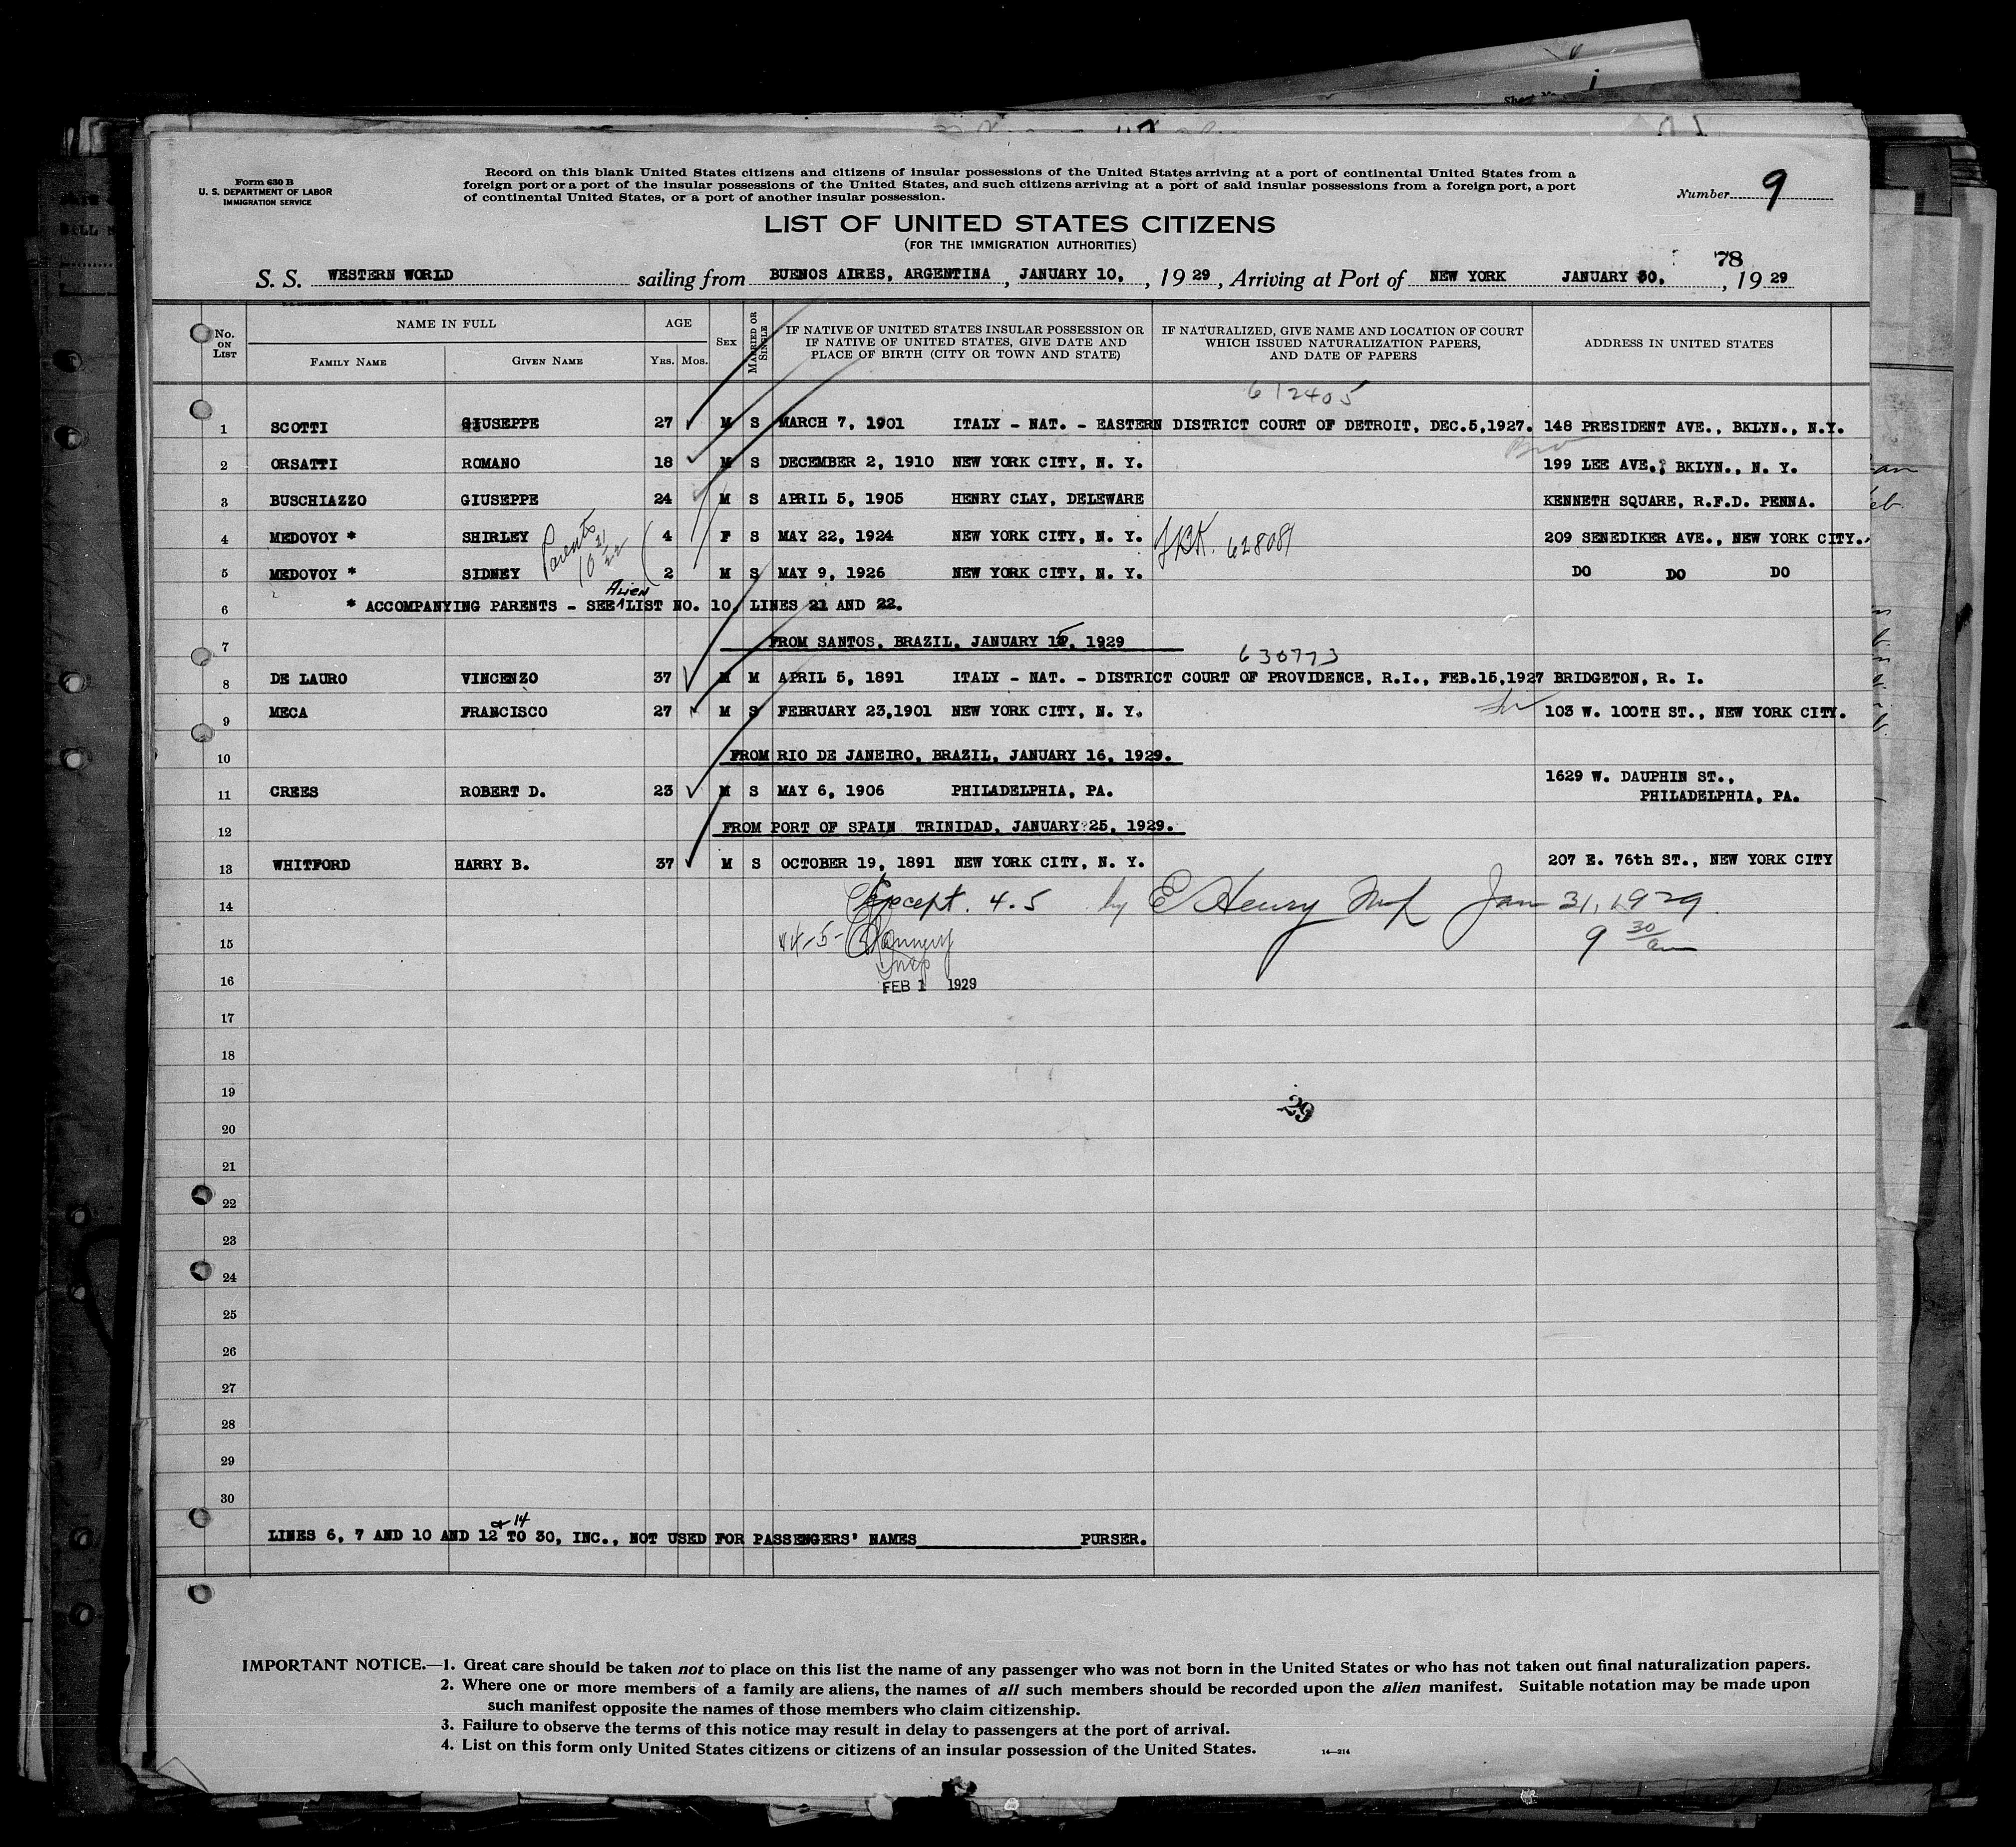 Form 630 B
U. S. DEPARTMENT OF LABOR
IMMIGRATION SERVICE
Record on this blank United States citizens and citizens of insular possessions of the United States arriving at a port of continental United States from a
foreign port or a port of the insular possessions of the United States, and such citizens arriving at a port of said insular possessions from a foreign port, a port
of continental United States, or a port of another insular possession.
Number 9
LIST OF UNITED STATES CITIZENS
(FOR THE IMMIGRATION AUTHORITIES)
78
S. S. WESTERN WORLD sailing from BUENOS AIRES, ARGENTINA, JANUARY 10, , 19 29, Arriving at Port of NEW YORK JANUARY 30, , 19 29
No. ON LIST
NAME IN FULL
FAMILY NAME
GIVEN NAME
AGE
YRS. MOS.
SEX
MARRIED OR SINGLE
IF NATIVE OF UNITED STATES INSULAR POSSESSION OR
IF NATIVE OF UNITED STATES, GIVE DATE AND
PLACE OF BIRTH (CITY OR TOWN AND STATE)
IF NATURALIZED, GIVE NAME AND LOCATION OF COURT
WHICH ISSUED NATURALIZATION PAPERS,
AND DATE OF PAPERS
ADDRESS IN UNITED STATES
612405
1 SCOTTI GIUSEPPE 27 M S MARCH 7, 1901 ITALY - NAT. - EASTERN DISTRICT COURT OF DETROIT, DEC.5,1927. 148 PRESIDENT AVE., BKLYN., N.Y.
2 ORSATTI ROMANO 18 M S DECEMBER 2, 1910 NEW YORK CITY, N. Y. 199 LEE AVE., BKLYN., N. Y.
3 BUSCHIAZZO GIUSEPPE 24 M S APRIL 5, 1905 HENRY CLAY, DELEWARE KENNETH SQUARE, R.F.D. PENNA.
4 MEDOVOY * SHIRLEY 4 F S MAY 22, 1924 NEW YORK CITY, N. Y. 628081 209 SENEDIKER AVE., NEW YORK CITY.
Parents 10 21/22
5 MEDOVOY * SIDNEY 2 M S MAY 9, 1926 NEW YORK CITY, N. Y. DO DO DO
Alien
6 * ACCOMPANYING PARENTS - SEE LIST NO. 10, LINES 21 AND 22.
7 FROM SANTOS, BRAZIL, JANUARY 15, 1929
630773
8 DE LAURO VINCENZO 37 M M APRIL 5, 1891 ITALY - NAT. - DISTRICT COURT OF PROVIDENCE, R.I., FEB.15,1927 BRIDGETON, R. I.
9 MECA FRANCISCO 27 M S FEBRUARY 23,1901 NEW YORK CITY, N. Y. 103 W. 100TH ST., NEW YORK CITY.
10 FROM RIO DE JANEIRO, BRAZIL, JANUARY 16, 1929.
11 CREES ROBERT D. 23 M S MAY 6, 1906 PHILADELPHIA, PA. 1629 W. DAUPHIN ST.,
PHILADELPHIA, PA.
12 FROM PORT OF SPAIN TRINIDAD, JANUARY 25, 1929.
13 WHITFORD HARRY B. 37 M S OCTOBER 19, 1891 NEW YORK CITY, N. Y. 207 E. 76th ST., NEW YORK CITY
14 Except. 4.5 by E Henry Insp Jan 31, 1929.
15 4-5- 9 30/am
Insp
16 FEB 1 1929
17
18
19
29
20
21
22
23
24
25
26
27
28
29
30
& 14
LINES 6, 7 AND 10 AND 12 TO 30, INC., NOT USED FOR PASSENGERS' NAMES PURSER.
IMPORTANT NOTICE.—1. Great care should be taken not to place on this list the name of any passenger who was not born in the United States or who has not taken out final naturalization papers.
2. Where one or more members of a family are aliens, the names of all such members should be recorded upon the alien manifest. Suitable notation may be made upon
such manifest opposite the names of those members who claim citizenship.
3. Failure to observe the terms of this notice may result in delay to passengers at the port of arrival.
4. List on this form only United States citizens or citizens of an insular possession of the United States. 14—214